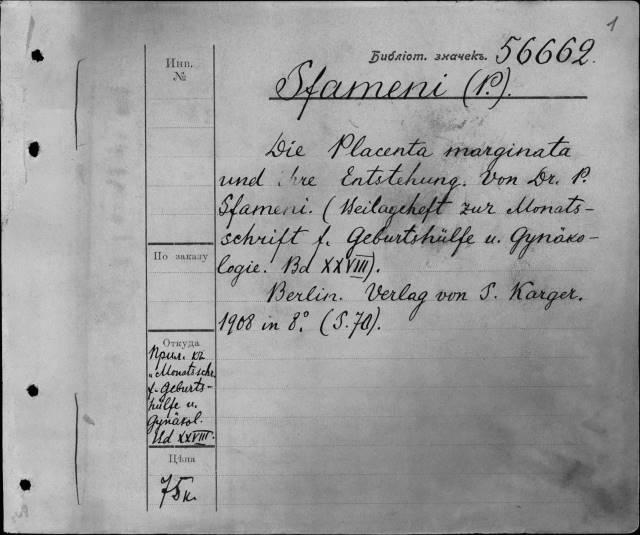 1
Библіот. значекъ. 56662.
Sfameni (P.).
Инв.
№
Die Placenta marginata
und ihre Entstehung. Von Dr. P.
Sfameni. (Beilageheft zur Monats-
schrift f. Geburtshülfe u. Gynäko-
logie. Bd XXVIII).
Berlin. Verlag von S. Karger.
1908 in 8.° (S. 70).
По заказу
Откуда
Прил. къ
„Monatsschr.
f. Geburts-
hülfe u.
Gynäkol.
Bd XXVIII.
Цѣна
75 к.